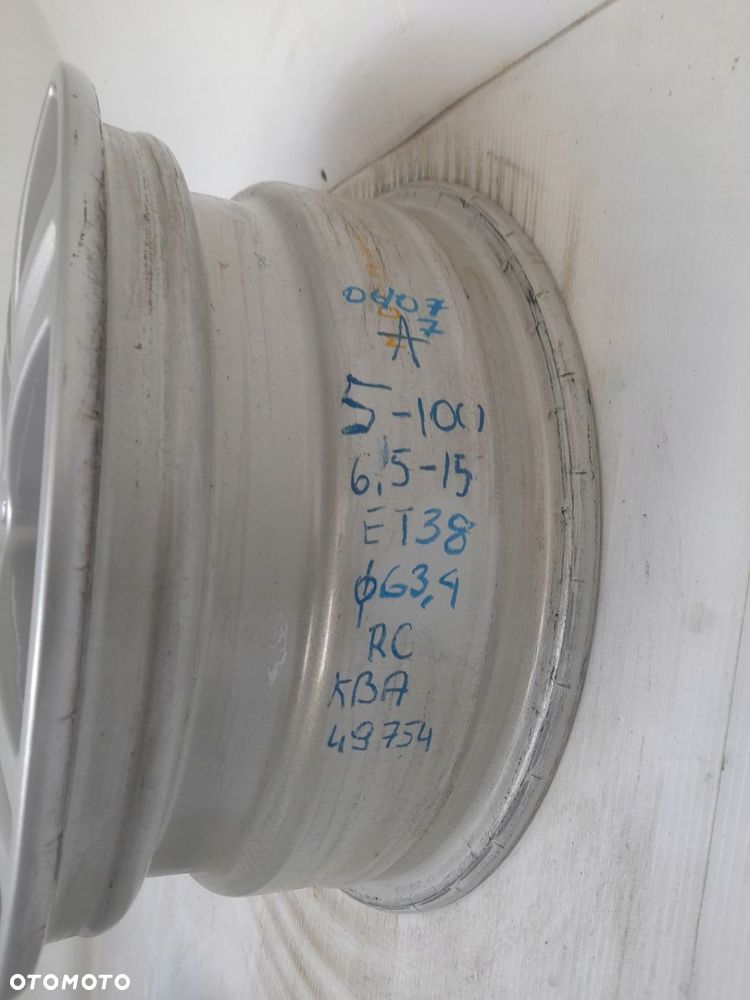 0407
A7
5-100
6,5-15
ET38
ϕ63,4
RC
KBA
49754
OTOMOTO